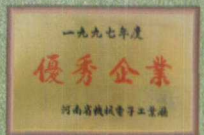 一九九七年度
優秀企業
河南省机械電子工業廳